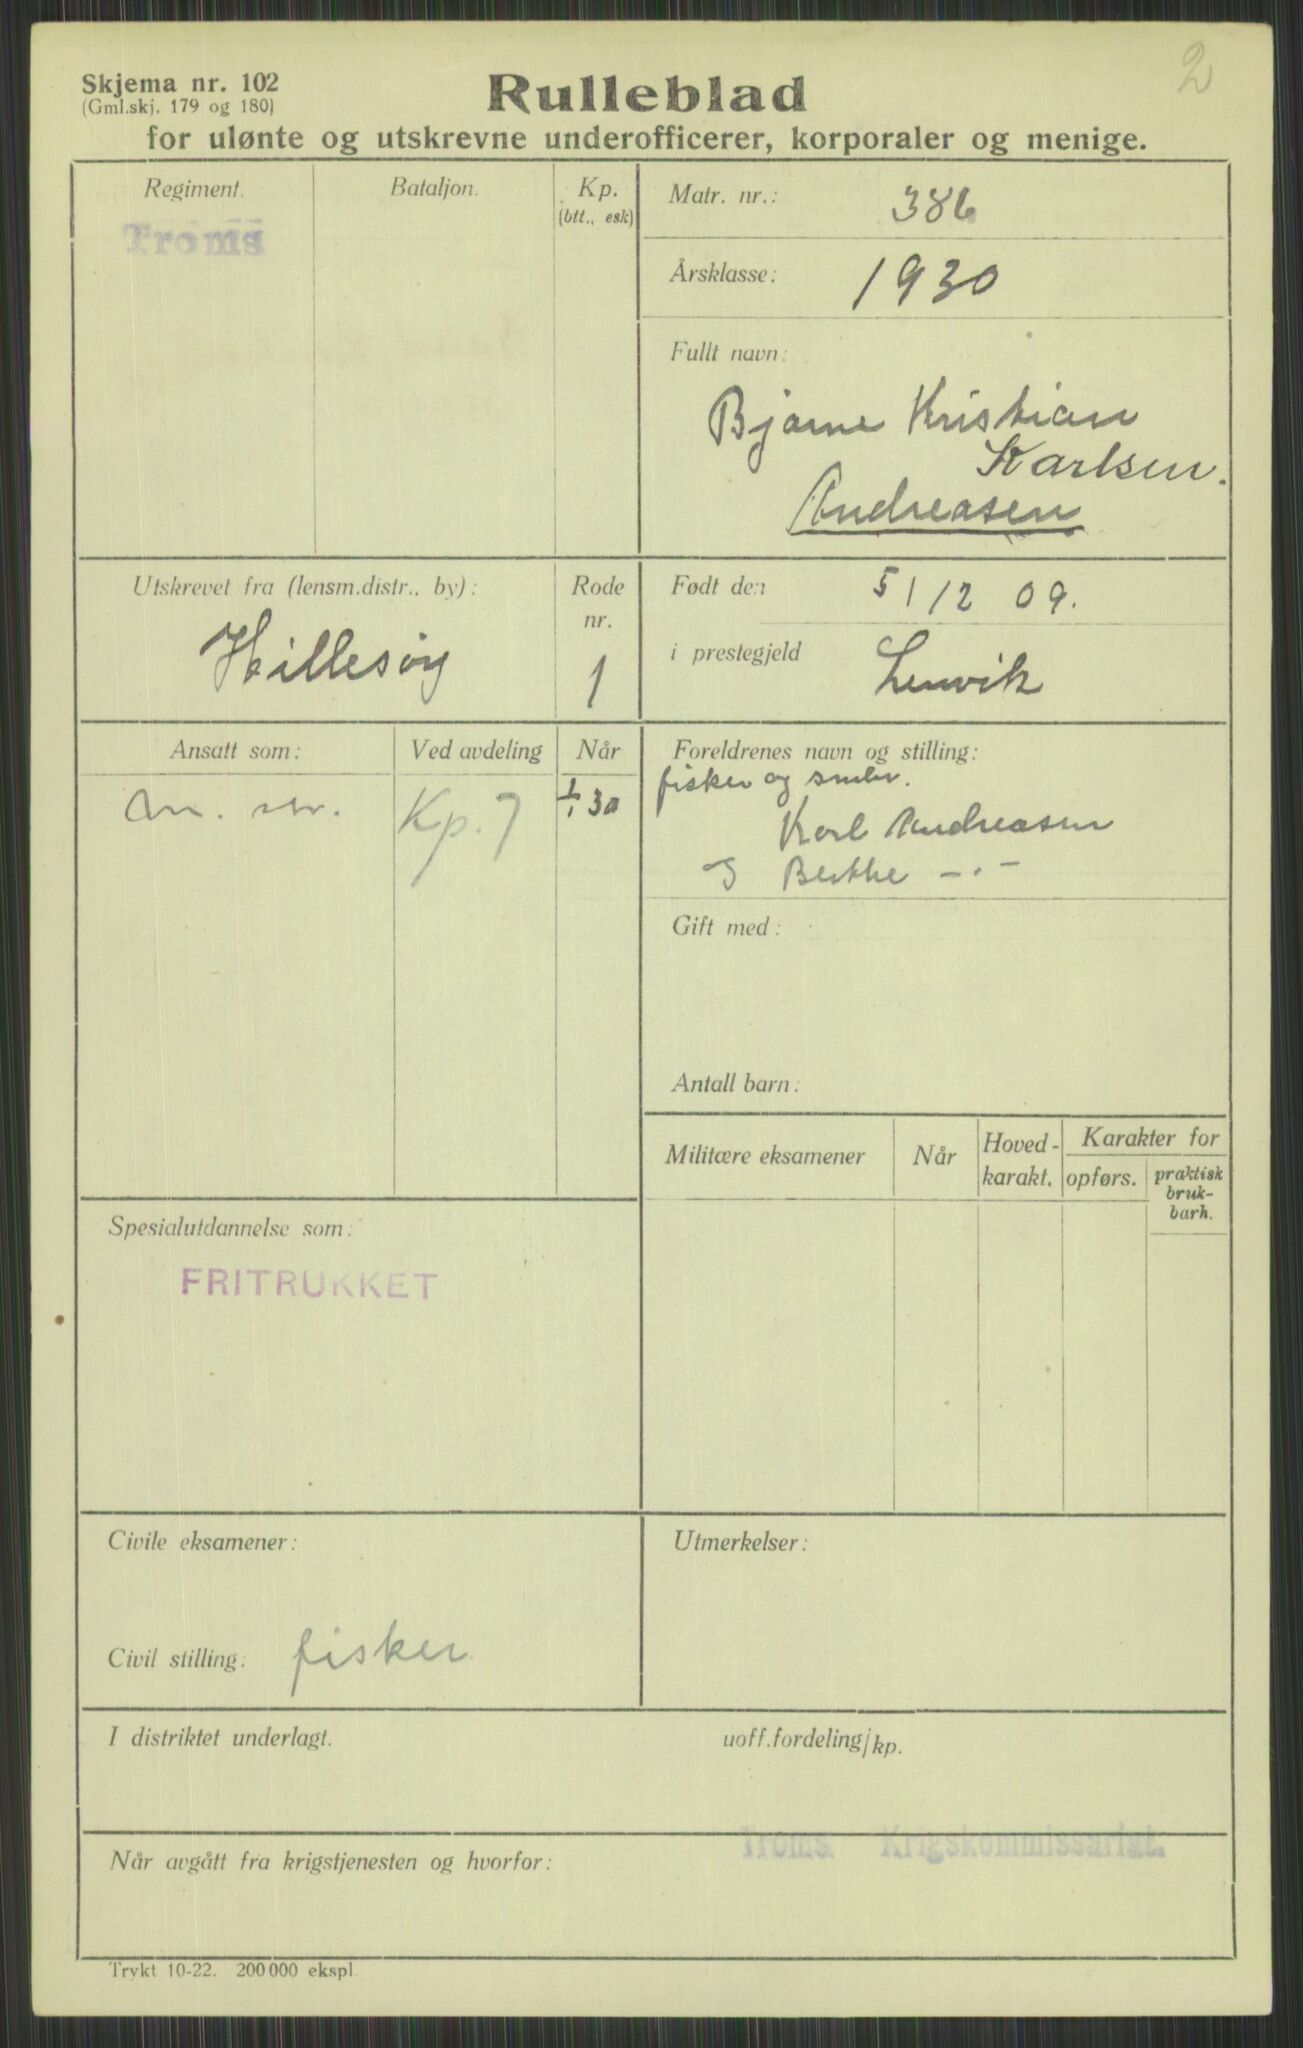 2
Skjema nr. 102
(Gml.skj. 179 og 180)
Rulleblad
for ulønte og utskrevne underofficerer, korporaler og menige.
Regiment.
Troms
Bataljon.
Kp.
(btt., esk)
Matr. nr.: 386
Årsklasse: 1930
Fullt navn:
Bjarne Kristian
Karlsen.
Andreasen
Utskrevet fra (lensm.distr., by):
Hillesøy
Rode
nr.
1
Født den 5/12 09.
i prestegjeld Lenvik
Ansatt som:
Ved avdeling
Kp. 7
Når
1/1 30
Foreldrenes navn og stilling:
fisker og smbr.
Karl Andreasen
Berthe -.-
Gift med:
Antall barn:
Militære eksamener
Når
Hoved-
karakt.
Karakter for
opførs.
praktisk
bruk-
barh.
Spesialutdannelse som:
FRITRUKKET
Civile eksamener:
Civil stilling: fisker
Utmerkelser:
I distriktet underlagt.
uoff.fordeling/kp.
Troms Krigskommissariat.
Når avgått fra krigstjenesten og hvorfor:
Trykt 10-22. 200 000 ekspl.